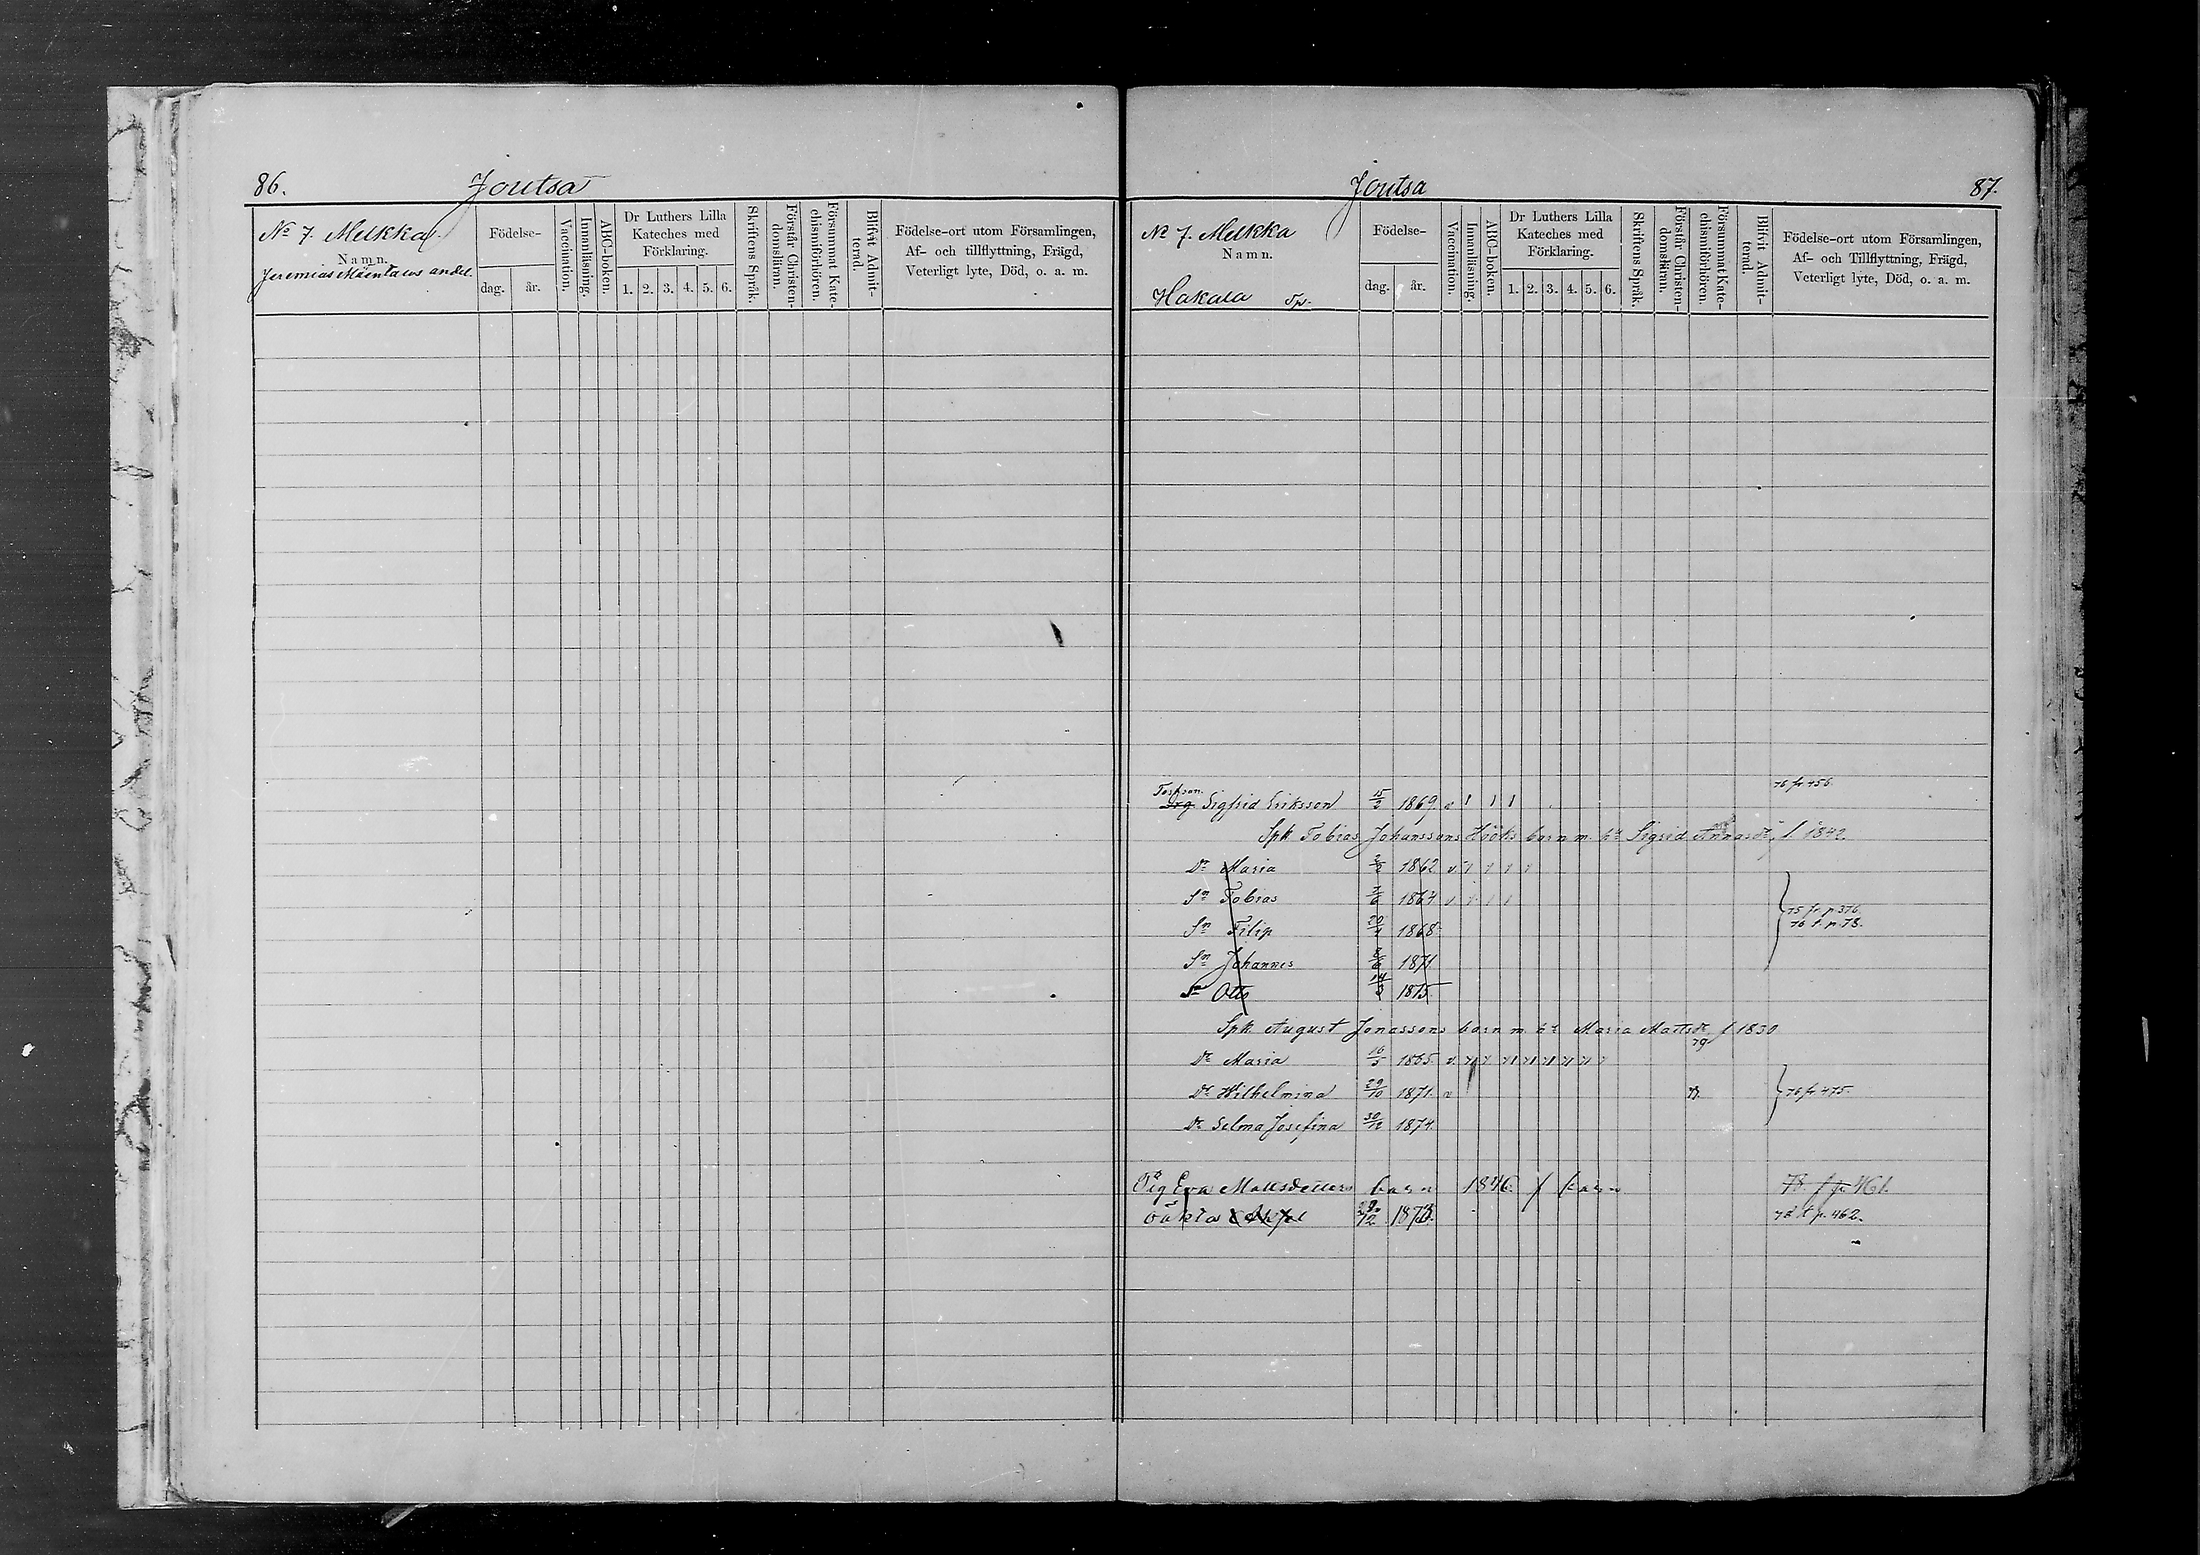 86. Joutsa
No 7. Melkka.
Namn.
Jeremias Mäentaus andel.
Födelse-
dag. år.
Vaccination.
Innanläsning.
ABC-boken.
Dr Luthers Lilla
Kateches med
Förklaring.
1. 2. 3. 4. 5. 6.
Skriftens Språk.
Förstår Christen-
domsläran.
Försummat Kate-
chismiförhören.
Blifvit Admit-
terad.
Födelse-ort utom Församlingen,
Af- och tillflyttning, Frägd,
Veterligt lyte, Död, o. a. m.
Joutsa 87.
No 7. Melkka
Namn.
Hakala
Födelse-
dag. år.
Vaccination.
Innanläsning.
ABC-boken.
Dr Luthers Lilla
Kateches med
Förklaring.
1. 2. 3. 4. 5. 6.
Skriftens Språk.
Förstår Christen-
domsläran.
Försummat Kate-
chismiförhören.
Blifvit Admit-
terad.
Födelse-ort utom Församlingen,
Af- och Tillflyttning, Frägd,
Veterligt lyte, Död, o. a. m.
76 fr 456
Sigfrid Eriksson 15/2 1869 v
Spk Tobias Johanssons Hööks barn m. hu Sigrid Annasdr f. 1842
Dr Maria 1862 v
Sn Tobias 7/6 1864 v
75 fr. p 376
Sn Filip 1868
76 t. p. 78.
Sn Johannes 1871
Sn Otto 1875
Spk August Jonassons barn m. hu Maria Mattsdr f 1830
79
Dr Maria 16/5 1865. v
Dr Wilhelmina 29/10 1871. v 76 fr 475.
Dr Selma Josefina 30/12 1874.
Pig Eva Mattsdotters barn 1846 f barn 78 f fr 461.
oäkta 1873. 78 t p. 462.